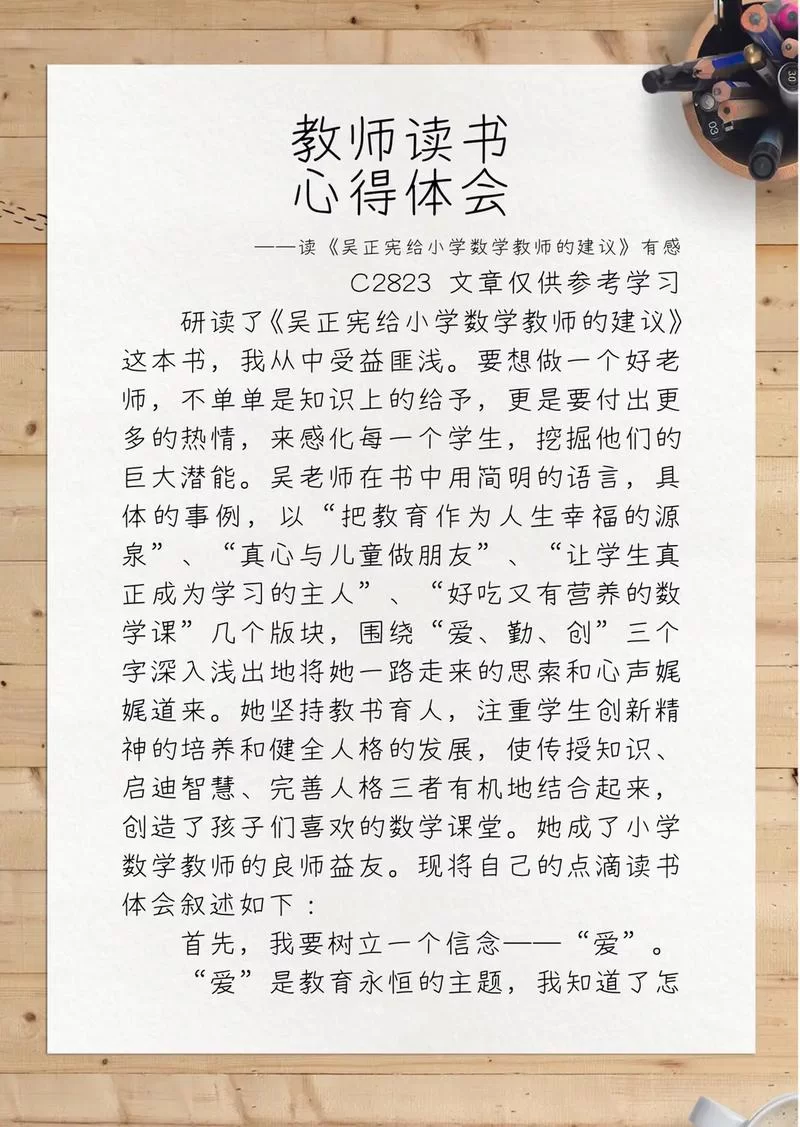 教师读书
心得体会
——读《吴正宪给小学数学教师的建议》有感
C2823 文章仅供参考学习
研读了《吴正宪给小学数学教师的建议》
这本书，我从中受益匪浅。要想做一个好老
师，不单单是知识上的给予，更是要付出更
多的热情，来感化每一个学生，挖掘他们的
巨大潜能。吴老师在书中用简明的语言，具
体的事例，以“把教育作为人生幸福的源
泉”、“真心与儿童做朋友”、“让学生真
正成为学习的主人”、“好吃又有营养的数
学课”几个版块，围绕“爱、勤、创”三个
字深入浅出地将她一路走来的思索和心声娓
娓道来。她坚持教书育人，注重学生创新精
神的培养和健全人格的发展，使传授知识、
启迪智慧、完善人格三者有机地结合起来，
创造了孩子们喜欢的数学课堂。她成了小学
数学教师的良师益友。现将自己的点滴读书
体会叙述如下：
首先，我要树立一个信念——“爱”。
“爱”是教育永恒的主题，我知道了怎
30
03